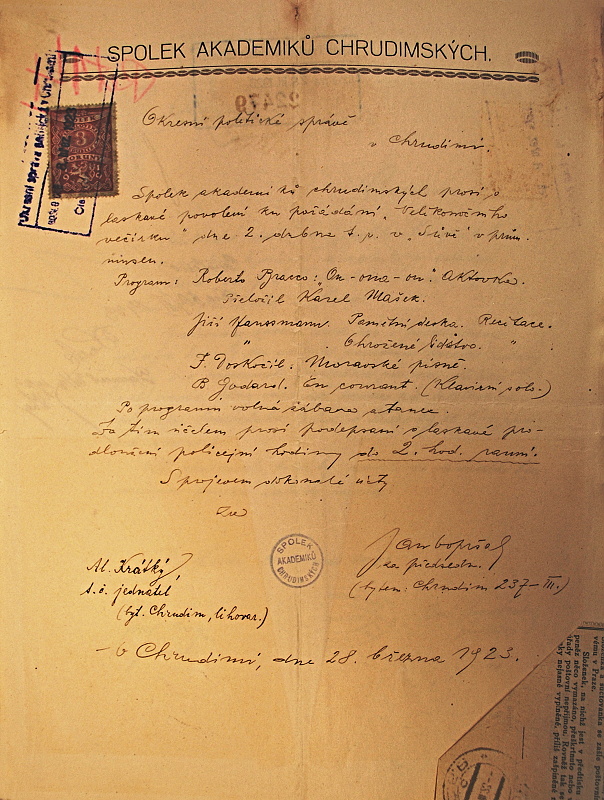 SPOLEK AKADEMIKŮ CHRUDIMSKÝCH.
22479
Okresní politické správě
v Chrudimi.
Spolek akademiků chrudimských prosí o
laskavé povolení ku pořádání „Velikonočního
večírku" dne 2. dubna t. r. v „
Program: Roberto Bracco: „On-ona-on". Aktovka.
Přeložil Karel Mašek.
Jiří Haussmann. Pamětní deska. Recitace.
" Ohrožené lidstvo. "
F. Doskočil: Moravské písně.
B. Godard. En courant. (Klavírní solo.)
Po programu volná zábava a tance.
Za tím účelem prosí podepsaní o laskavé pro-
dloužení policejní hodiny do 2. hod. ranní.
S projevem dokonalé úcty
Za
SPOLEK AKADEMIKŮ CHRUDIMSKÝCH
Al. Krátký
t. č. jednatel
(byt. Chrudim, lihovar.)
za předsedu.
(bytem: Chrudim 237-III.)
V Chrudimi, dne 28. března 1923.
vému v Praze.
Složenek, na nichž jest v předtisku